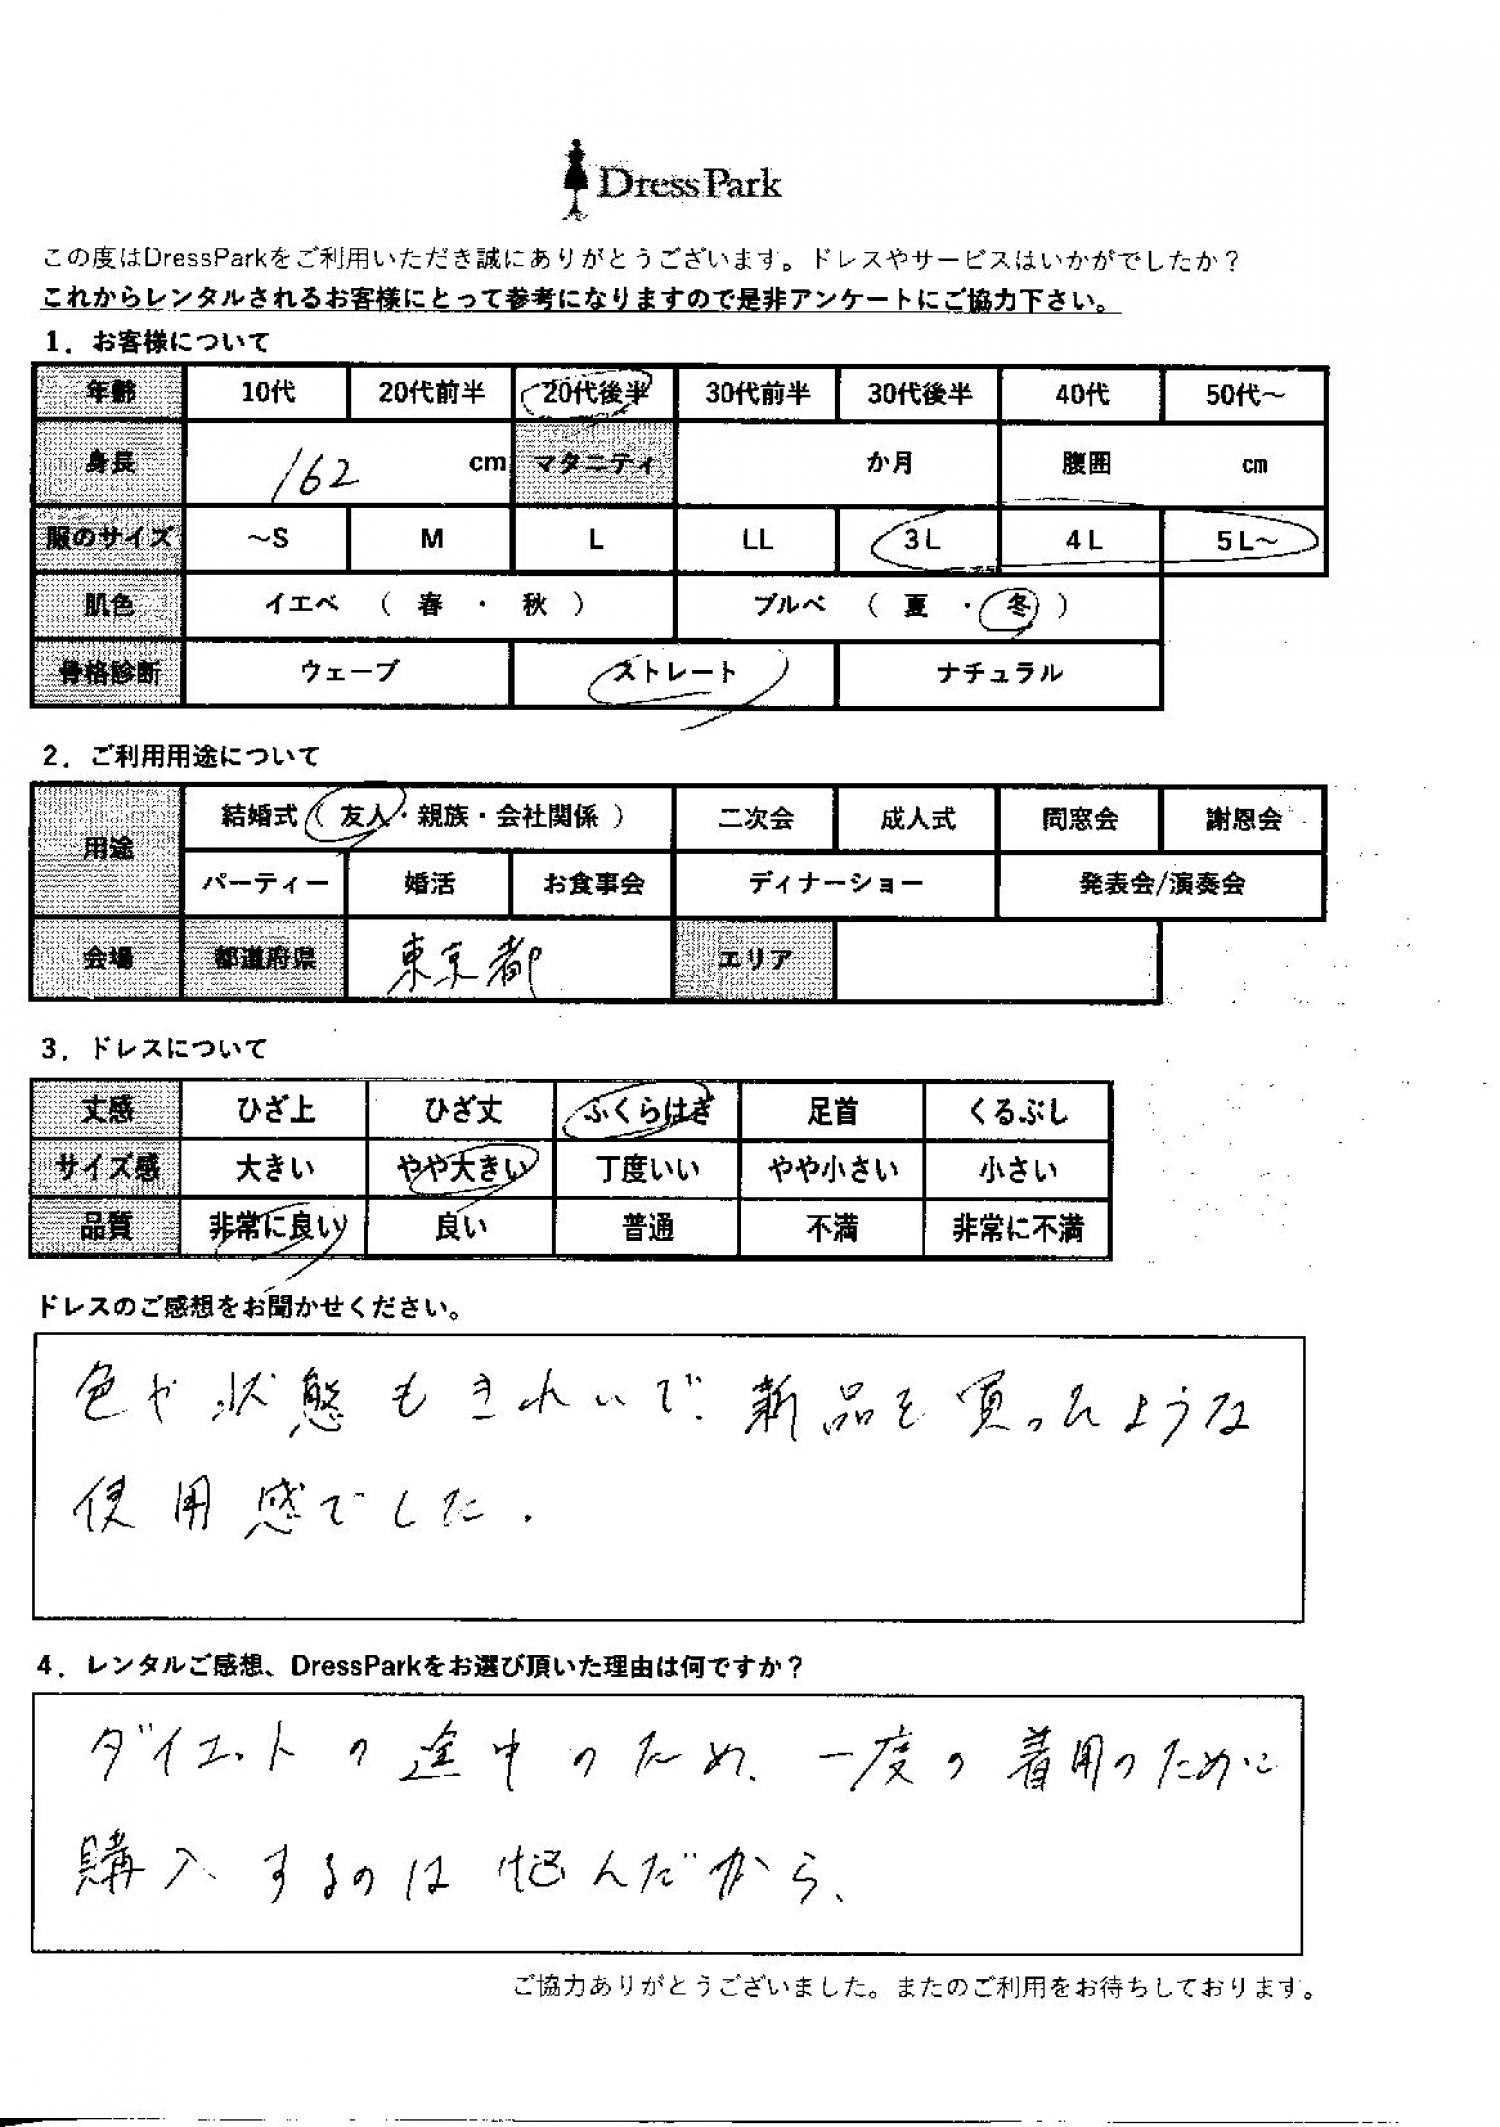 DressPark
この度はDressParkをご利用いただき誠にありがとうございます。ドレスやサービスはいかがでしたか？
これからレンタルされるお客様にとって参考になりますので是非アンケートにご協力下さい。
1．お客様について
年齢 10代 20代前半 20代後半 30代前半 30代後半 40代 50代～
身長 162 cm マタニティ か月 腹囲 cm
服のサイズ ～S M L LL 3L 4L 5L～
肌色 イエベ （ 春 ・ 秋 ） ブルベ （ 夏 ・ 冬 ）
骨格診断 ウェーブ ストレート ナチュラル
2．ご利用用途について
用途 結婚式（ 友人・親族・会社関係 ） 二次会 成人式 同窓会 謝恩会
パーティー 婚活 お食事会 ディナーショー 発表会/演奏会
会場 都道府県 東京都 エリア
3．ドレスについて
丈感 ひざ上 ひざ丈 ふくらはぎ 足首 くるぶし
サイズ感 大きい やや大きい 丁度いい やや小さい 小さい
品質 非常に良い 良い 普通 不満 非常に不満
ドレスのご感想をお聞かせください。
色や状態もきれいで、新品を買ったような
使用感でした。
4．レンタルご感想、DressParkをお選び頂いた理由は何ですか？
ダイエットの途中のため、一度の着用のために
購入するのは悩んだから、
ご協力ありがとうございました。またのご利用をお待ちしております。